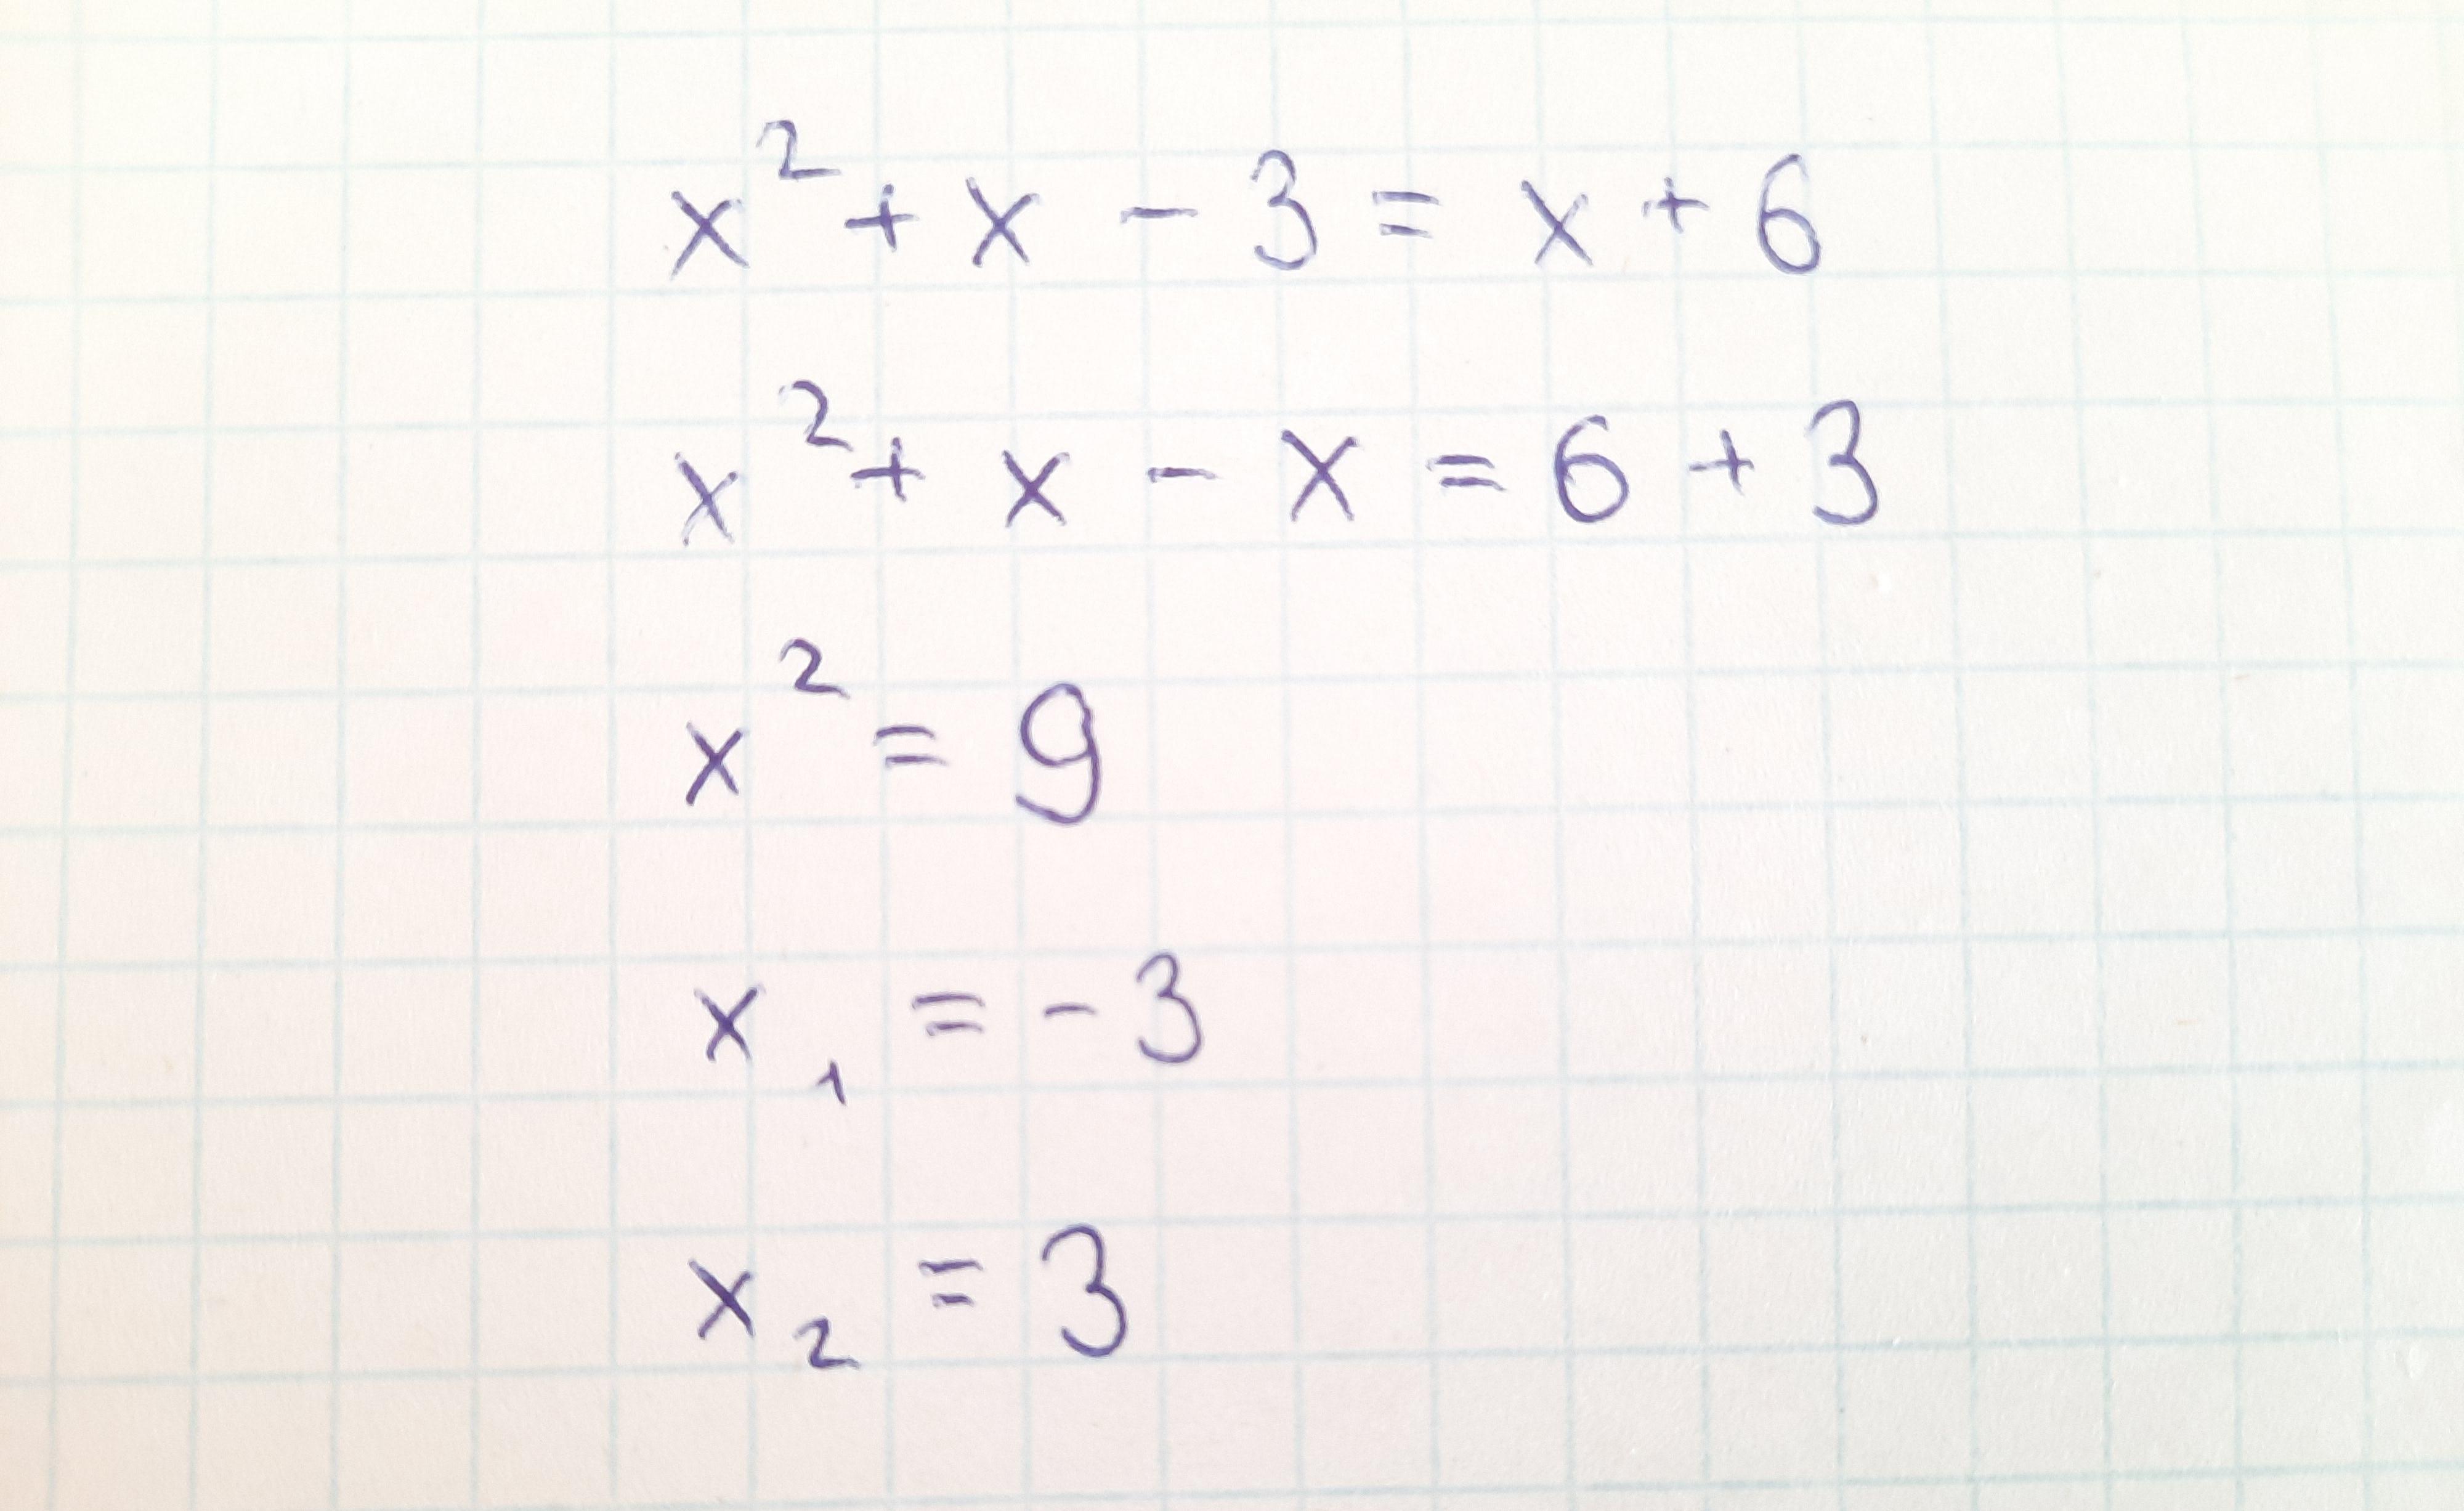 x² + x - 3 = x + 6
x² + x - x = 6 + 3
x² = 9
x₁ = -3
x₂ = 3